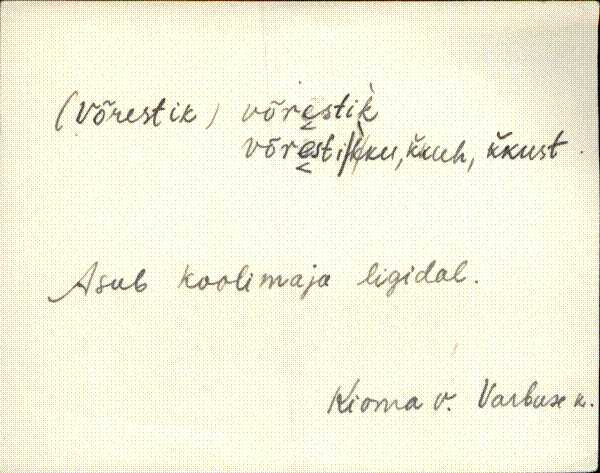 (Võrestik) võre̬stik̀
võre̬sti/k̀ku, k̆kuh, k̆kust.
Asub koolimaja ligidal.
Kioma v. Varbuse k.